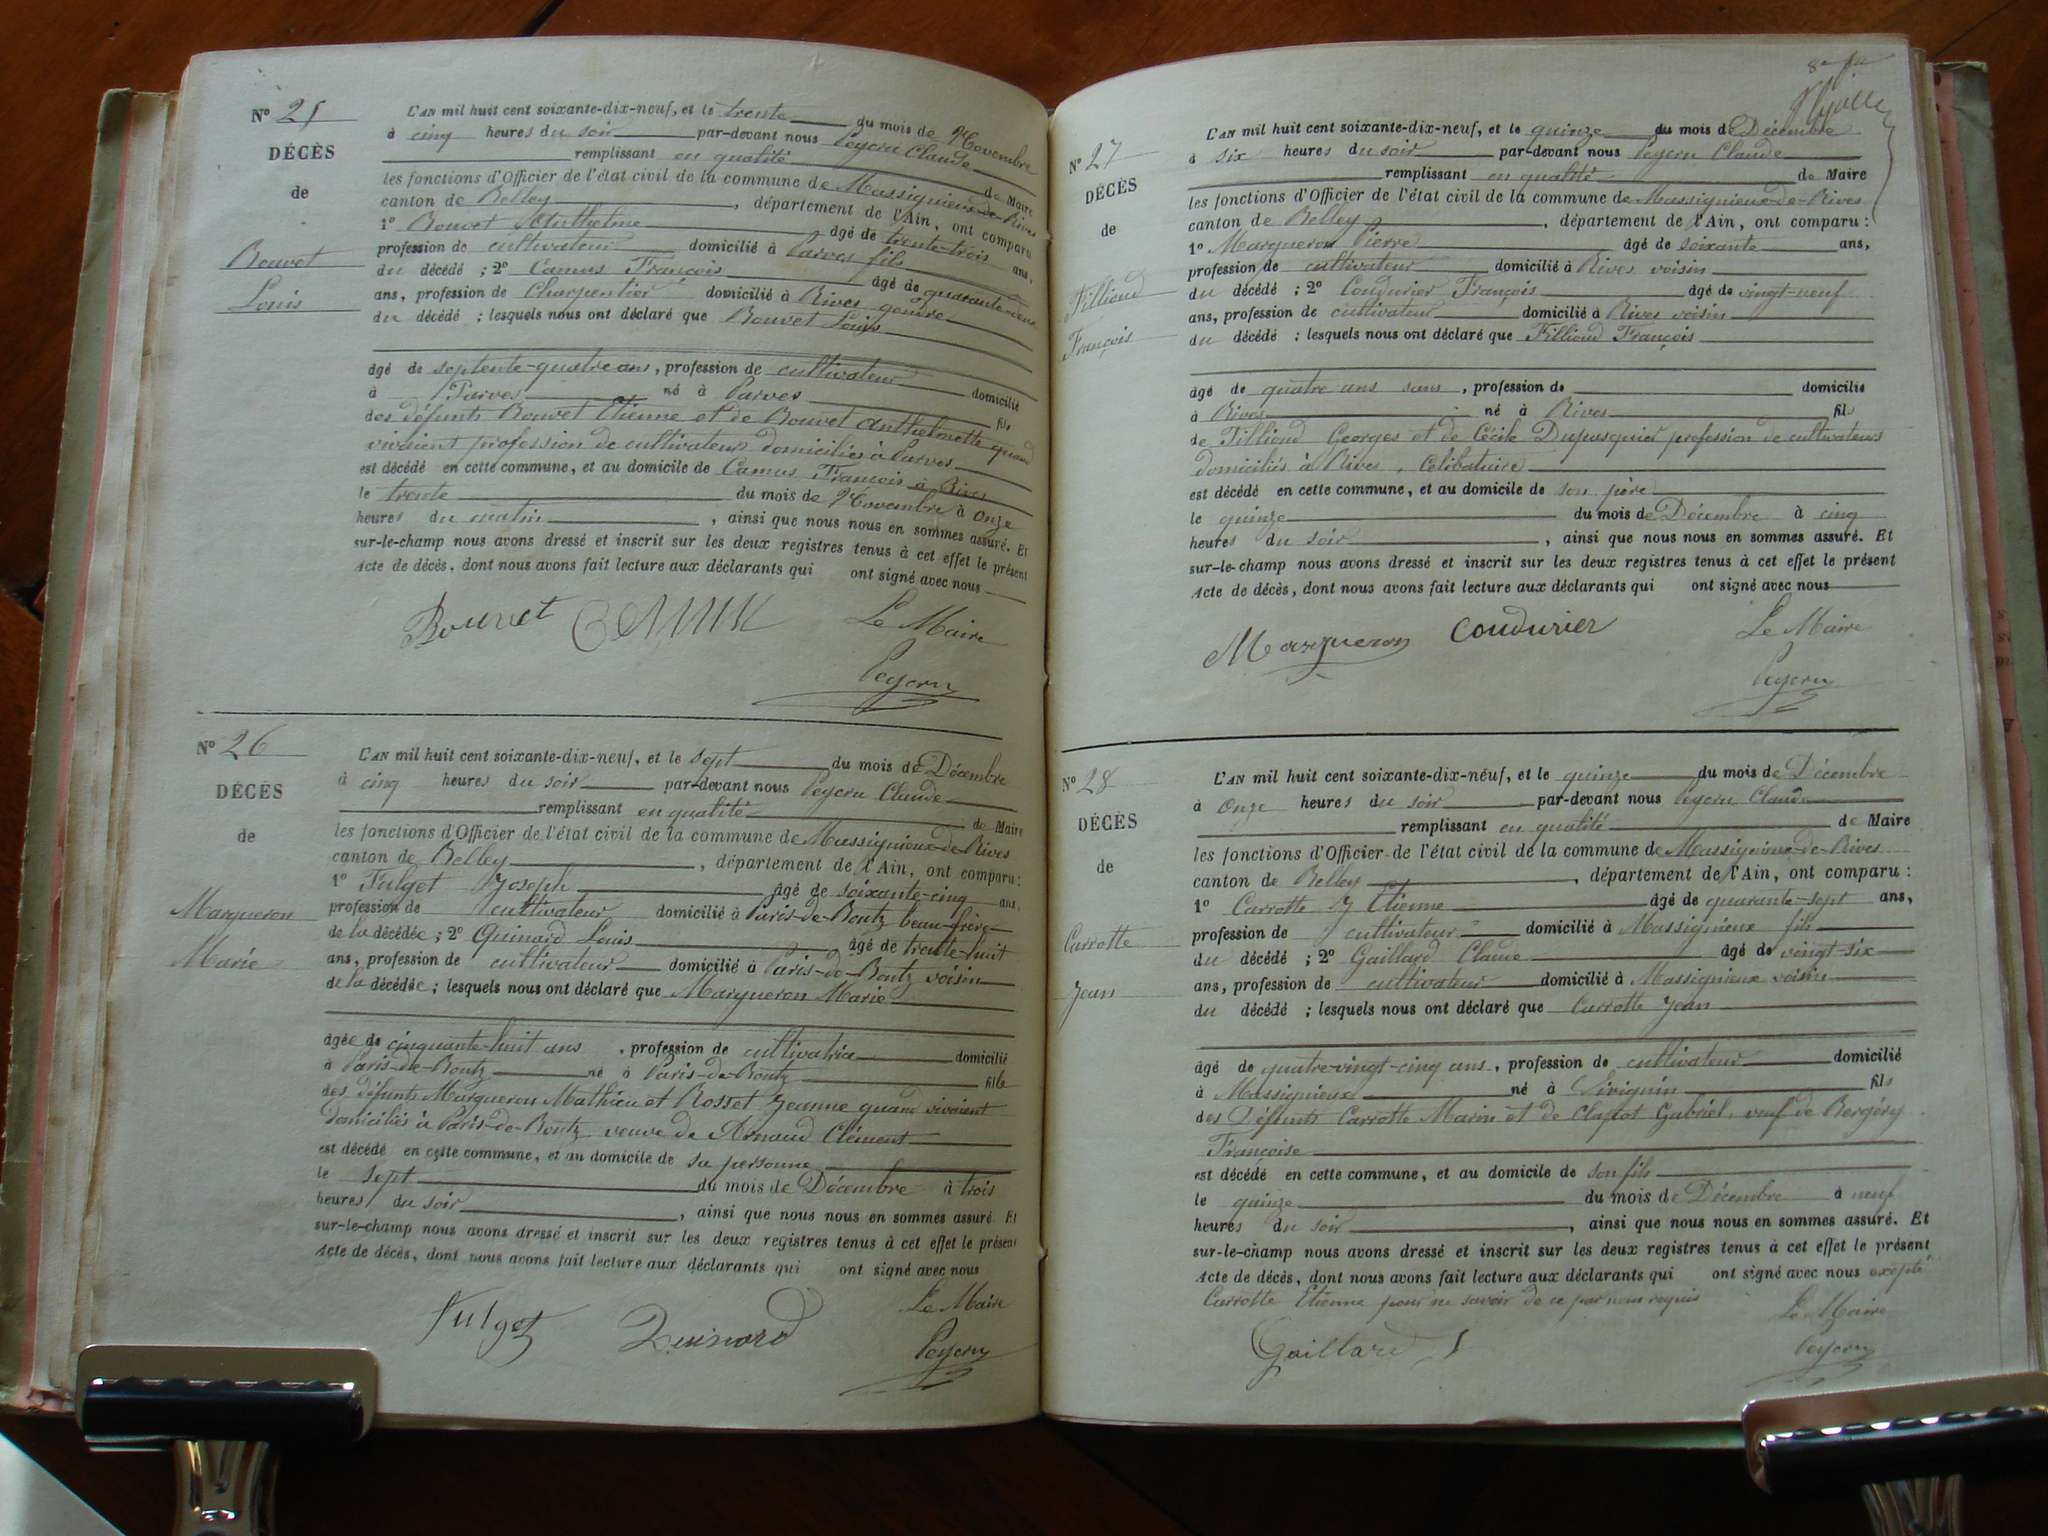 N° 25
DÉCÈS
de
Bouvet
Louis
L'AN mil huit cent soixante-dix-neuf, et le trente du mois de Novembre
à cinq heures du soir par-devant nous Peycru Claude
remplissant en qualité de Maire
les fonctions d'Officier de l'état civil de la commune de Massignieu-de-Rives
canton de Belley, département de l'Ain, ont comparu
1° Bouvet Anthelme âgé de trente-trois ans,
profession de cultivateur domicilié à Parves fils
du décédé ; 2° Camus François âgé de quarante-deux
ans, profession de Charpentier domicilié à Rives gendre
du décédé ; lesquels nous ont déclaré que Bouvet Louis
âgé de septente-quatre ans, profession de cultivateur domicilié
à Parves né à Parves fils
des défunts Bouvet Etienne et de Bouvet Anthelmette quand
vivaient profession de cultivateurs domiciliés à Parves
est décédé en cette commune, et au domicile de Camus François à Rives
le trente du mois de Novembre à onze
heures du matin, ainsi que nous nous en sommes assuré. Et
sur-le-champ nous avons dressé et inscrit sur les deux registres tenus à cet effet le présent
Acte de décès, dont nous avons fait lecture aux déclarants qui ont signé avec nous
Bouvet Le Maire
Peycru
N° 26
DÉCÈS
de
Margueron
Marie
L'AN mil huit cent soixante-dix-neuf, et le sept du mois de Décembre
à cinq heures du soir par-devant nous Peycru Claude
remplissant en qualité de Maire
les fonctions d'Officier de l'état civil de la commune de Massignieu-de-Rives
canton de Belley, département de l'Ain, ont comparu :
1° Fulget Joseph âgé de soixante-cinq ans,
profession de cultivateur domicilié à Paris-de-Boutz beau-frère
de la décédée ; 2° Guinard Louis âgé de trente-huit
ans, profession de cultivateur domicilié à Paris-de-Boutz voisin
de la décédée ; lesquels nous ont déclaré que Margueron Marie
âgée de cinquante-huit ans, profession de cultivatrice domicilié
à Paris-de-Boutz né à Paris-de-Boutz fille
des défunts Margueron Mathieu et Rosset Jeanne quand vivaient
domiciliés à Paris-de-Boutz veuve de Arnaud Clément
est décédé en cette commune, et au domicile de sa personne
le sept du mois de Décembre à trois
heures du soir, ainsi que nous nous en sommes assuré. Et
sur-le-champ nous avons dressé et inscrit sur les deux registres tenus à cet effet le présent
Acte de décès, dont nous avons fait lecture aux déclarants qui ont signé avec nous
Fulget Le Maire
Peycru
N° 27
DÉCÈS
de
Fillioud
François
L'AN mil huit cent soixante-dix-neuf, et le quinze du mois de Décembre
à six heures du soir par-devant nous Peycru Claude
remplissant en qualité de Maire
les fonctions d'Officier de l'état civil de la commune de Massignieu-de-Rives
canton de Belley, département de l'Ain, ont comparu :
1° Margueron Pierre âgé de soixante ans,
profession de cultivateur domicilié à Rives voisin
du décédé ; 2° Coudurier François âgé de vingt-neuf
ans, profession de cultivateur domicilié à Rives voisin
du décédé ; lesquels nous ont déclaré que Fillioud François
âgé de quatre ans sans, profession de domicilié
à Rives né à Rives fils
de Fillioud Georges et de Cécile Dupasquier profession de cultivateurs
domiciliés à Rives, Célibataire
est décédé en cette commune, et au domicile de son père
le quinze du mois de Décembre à cinq
heures du soir, ainsi que nous nous en sommes assuré. Et
sur-le-champ nous avons dressé et inscrit sur les deux registres tenus à cet effet le présent
Acte de décès, dont nous avons fait lecture aux déclarants qui ont signé avec nous
Margueron Coudurier Le Maire
Peycru
N° 28
DÉCÈS
de
Carrotte
Jean
L'AN mil huit cent soixante-dix-neuf, et le quinze du mois de Décembre
à onze heures du soir par-devant nous Peycru Claude
remplissant en qualité de Maire
les fonctions d'Officier de l'état civil de la commune de Massignieu-de-Rives
canton de Belley, département de l'Ain, ont comparu :
1° Carrotte Etienne âgé de quarante-sept ans,
profession de cultivateur domicilié à Massignieu fils
du décédé ; 2° Gaillard Claude âgé de vingt-six
ans, profession de cultivateur domicilié à Massignieu voisin
du décédé ; lesquels nous ont déclaré que Carrotte Jean
âgé de quatre-vingt-cinq ans, profession de cultivateur domicilié
à Massignieu né à fils
des Défunts Carrotte Marin et de Clapot Gabriel, veuf de Bergéry
Françoise
est décédé en cette commune, et au domicile de son fils
le quinze du mois de Décembre à neuf
heures du soir, ainsi que nous nous en sommes assuré. Et
sur-le-champ nous avons dressé et inscrit sur les deux registres tenus à cet effet le présent
Acte de décès, dont nous avons fait lecture aux déclarants qui ont signé avec nous excepté
Carrotte Etienne pour ne savoir de ce par nous requis
Gaillard Le Maire
Peycru